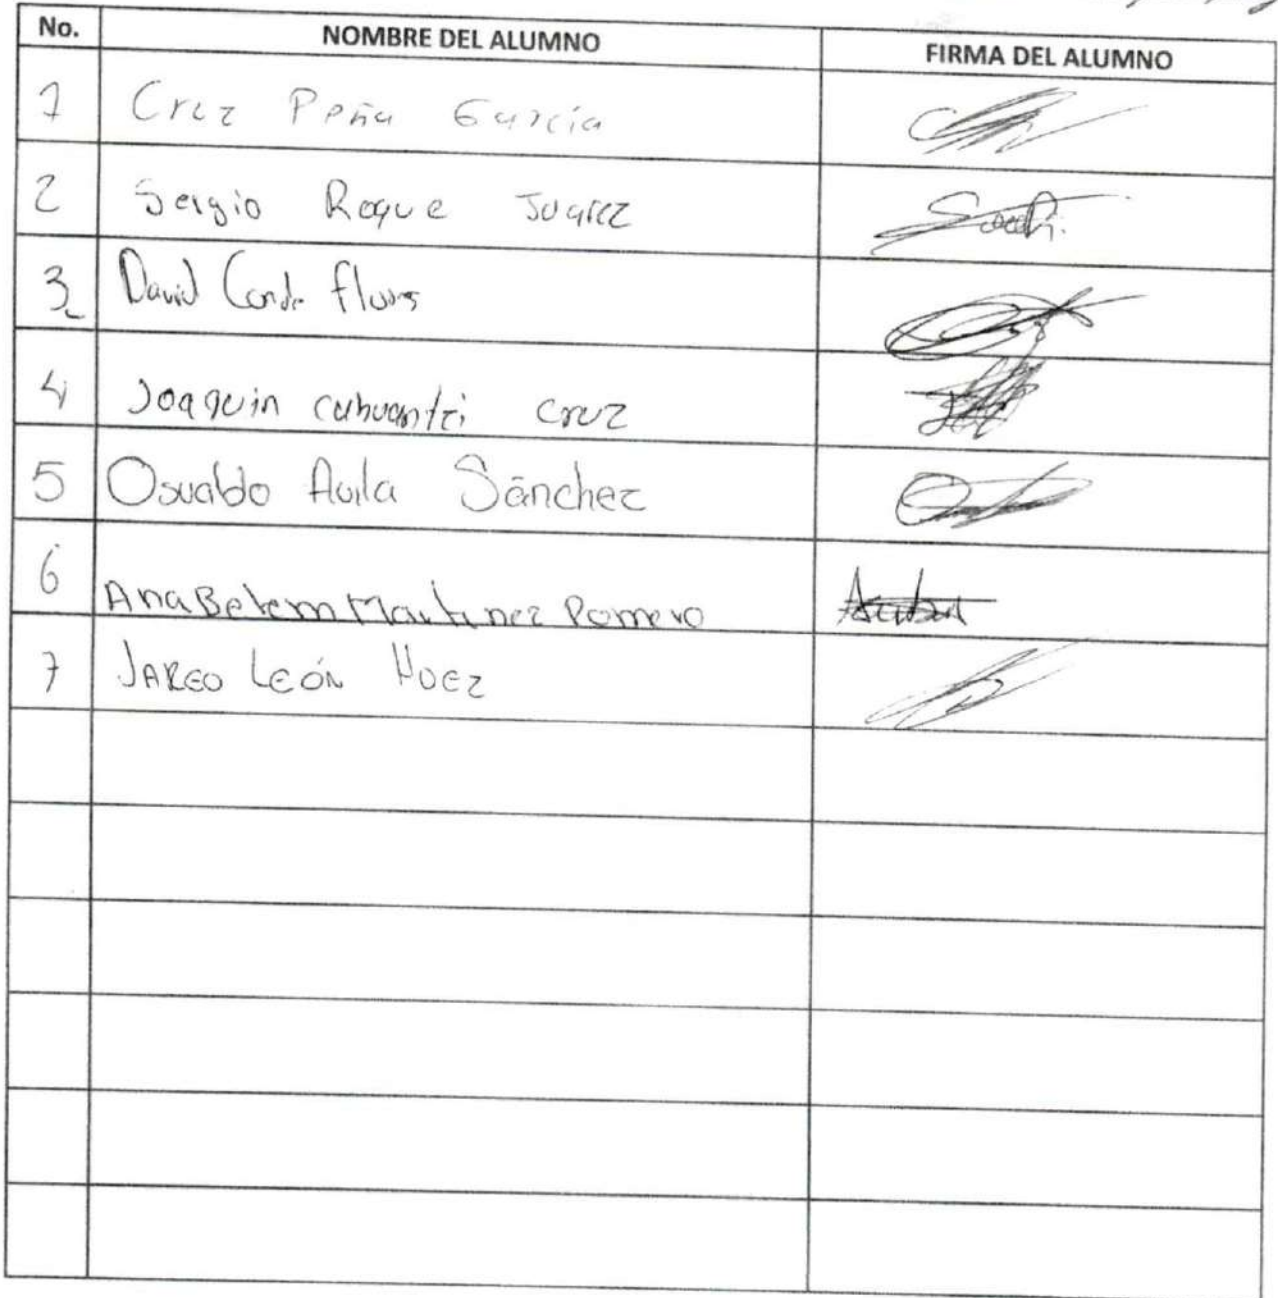 No. NOMBRE DEL ALUMNO FIRMA DEL ALUMNO
1 Cruz Peña García
2 Sergio Roque Juarez
3 David Conde Flores
4 Joaquin cahuantzi cruz
5 Osvaldo Avila Sánchez
6 Ana Belem Martinez Romero
7 JAREO LEÓN HUEZ